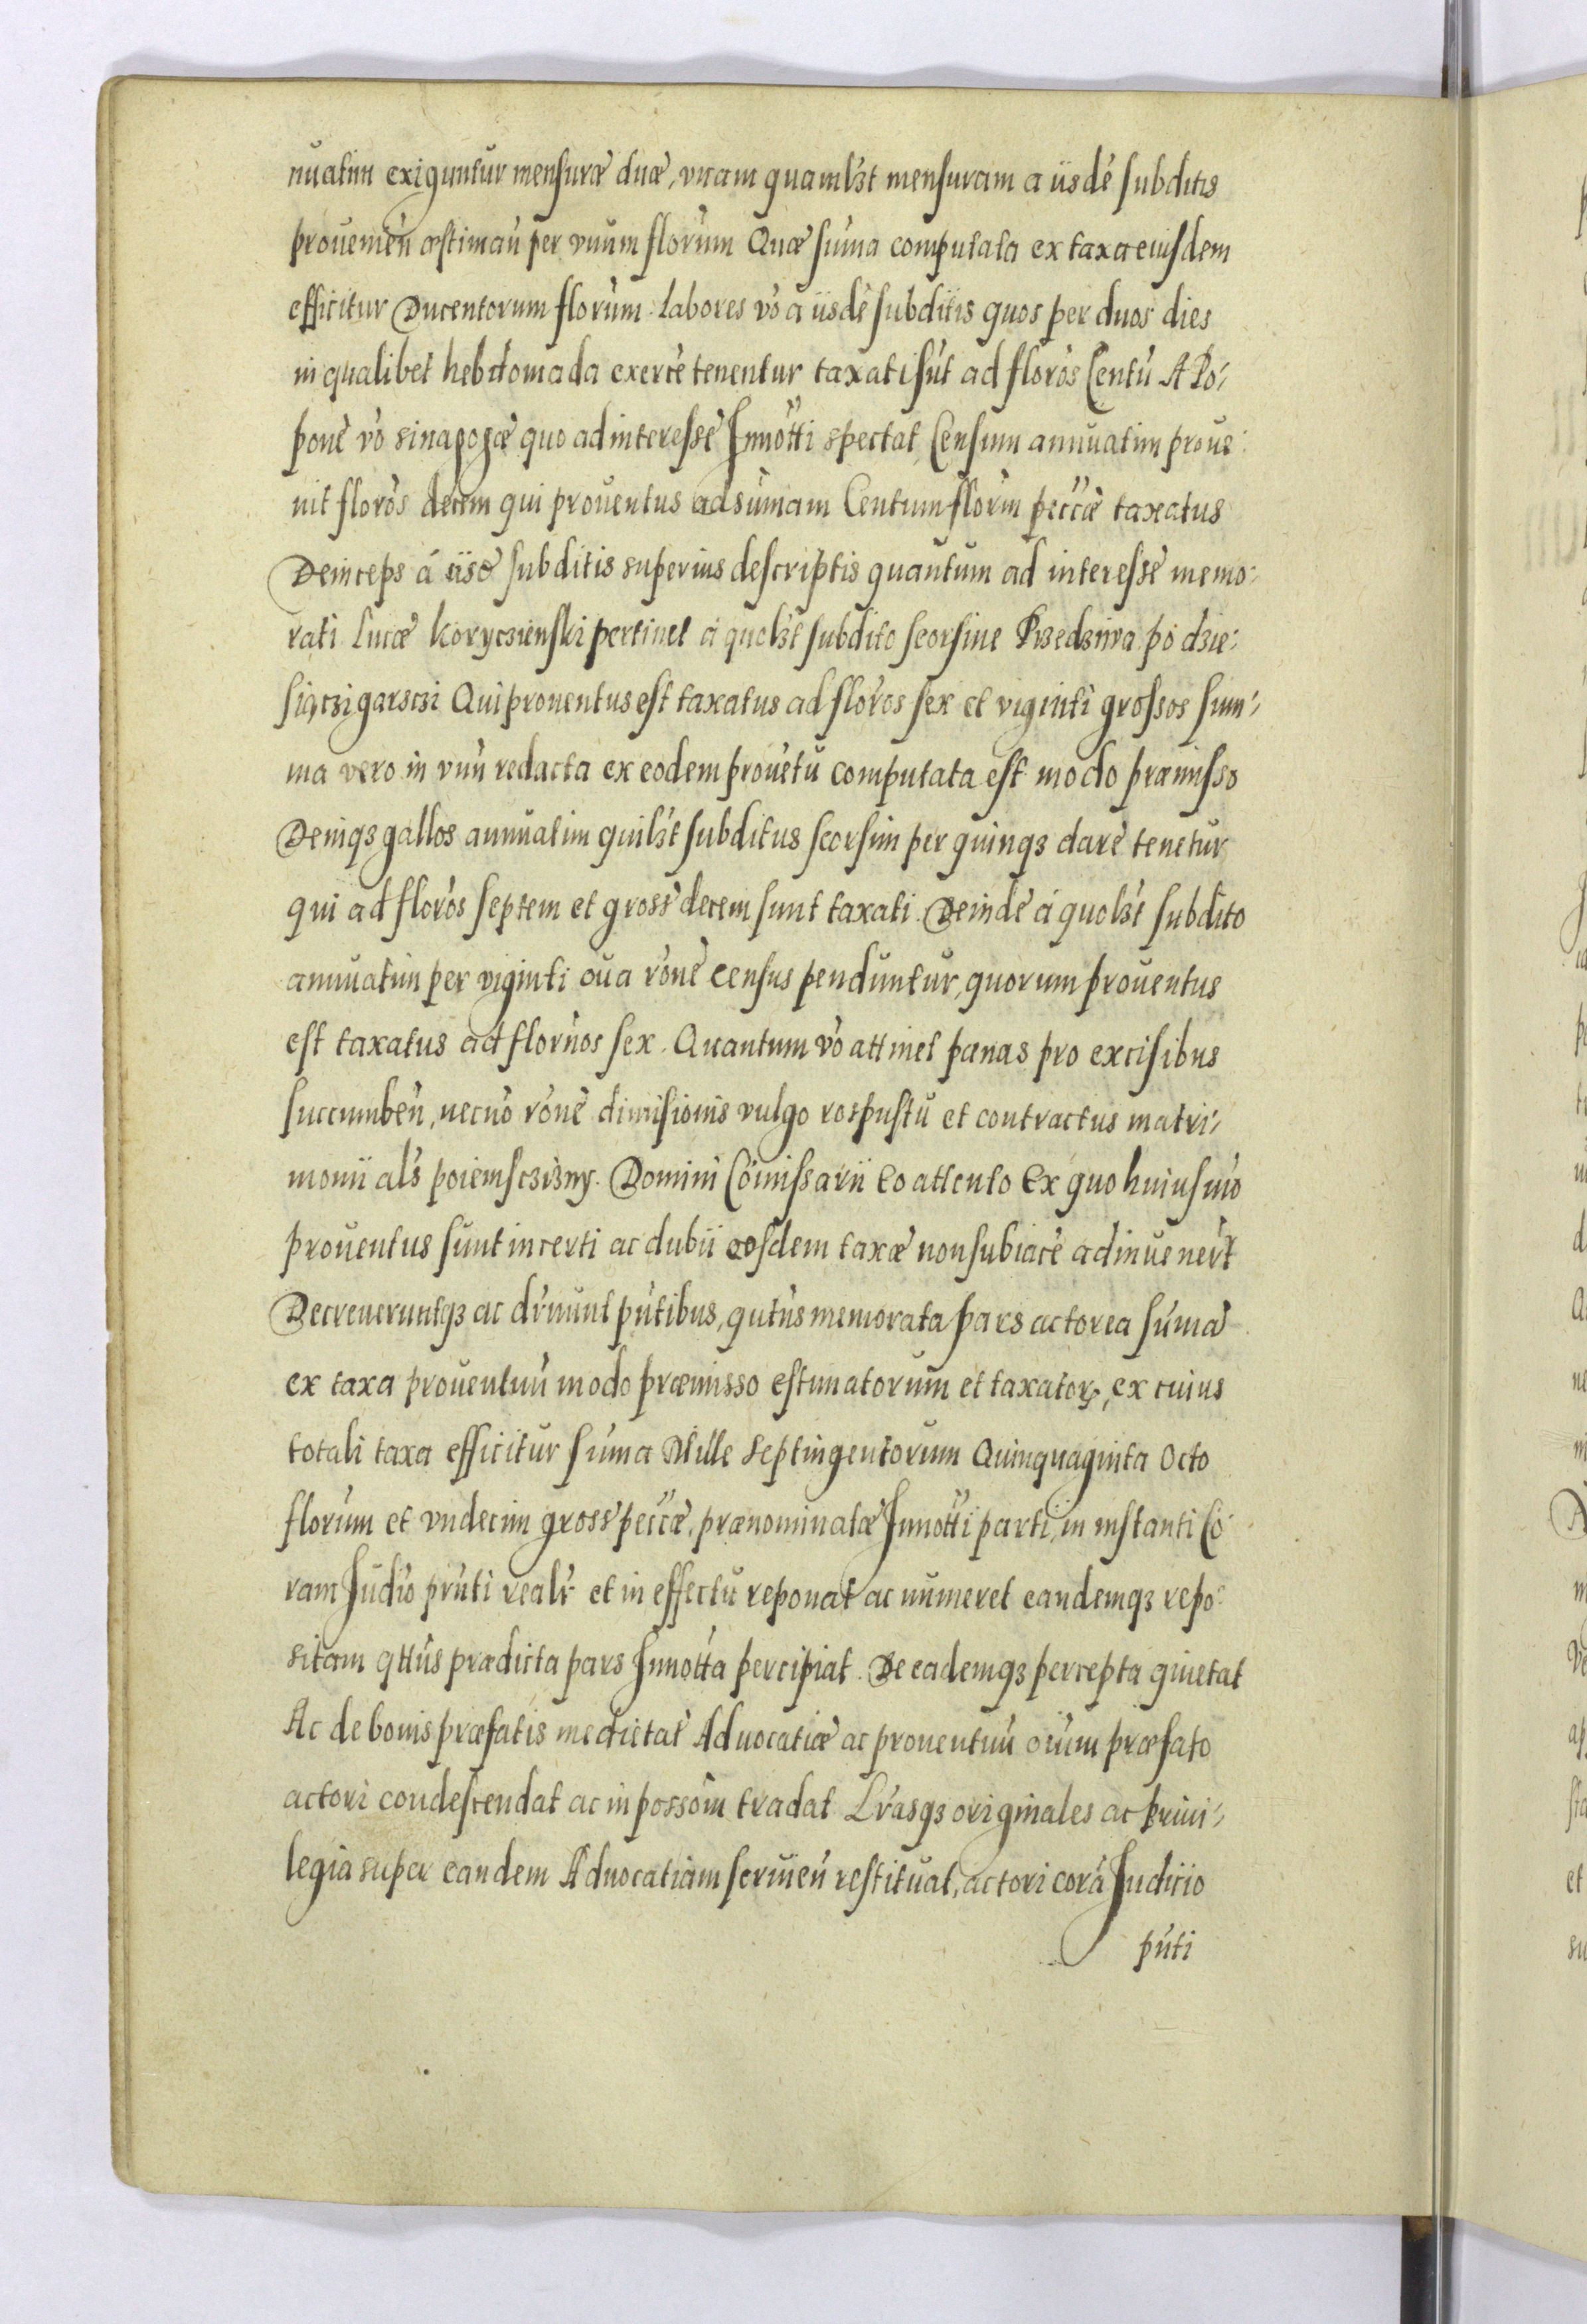 nuatim exiguntur mensuræ duæ, vnam quamlꝫt mensuram a iisdē subditis
prouenień æstimań per vnum floŕum Quæ sum̄a computata ex taxa eiusdem
efficitur Ducentorum floŕum. Labores vō a iisdē subditis quos per duos dies
in qualibet hebdomada exercē tenentur taxati sūt ad floŕos Centū A Po-
pone vō sinagogæ quo ad interesse Innotti spectat Censum annuatim proue-
nit floŕos decem qui prouentus ad sum̄am Centum floŕm peccæ taxatus
Deinceps á iisd subditis superius descriptis quantum ad interesse memo-
rati Lucæ Koryczienski pertinet á quolꝫt subdito seorsine Przedziwa po dzie-
siączi garsczi Qui prouentus est taxatus ad floros sex et viginti grossos sum-
ma vero in vnū redacta ex eodem prouētu computata est modo præmisso
Deniqꝫ gallos annuatim quilꝫt subditus seorsim per quinqꝫ dare tenetur
qui ad floŕos septem et gross decem sunt taxati. Deinde á quolꝫt subdito
annuatim per viginti oua rōne census penduntur, quorum prouentus
est taxatus ad floŕnos sex. Quantum vō attinet pænas pro excisibus
succumbeń, necnō rōne dimisionis vulgo rospustu et contractus matri-
monii alś poiemsczizny. Domini Com̄issarii Eo attento Ex quo huiusmō
prouentus sunt incerti ac dubii eosdem taxæ non subiacē adinuenerꝭt
Decreueruntqꝫ ac dŕnunt pūtibus, qutūs memorata pars actorea sum̄ā
ex taxa prouentuū modo præmisso estimatorum et taxatorꝝ, ex cuius
totali taxa efficitur sum̄a Mille Septingentorum Quinquaginta Octo
floŕum et vndecim gross peccæ, prænominatæ Innotti parti, in instanti Co-
ram Judīo pn̄ti realr et in effectu reponat ac numeret eandemqꝫ repo-
sitam qttūs prædicta pars Innotta percipiat. De eademqꝫ percepta quietat
Ac de bonis præfatis medietat Aduocatiæ ac prouentuū oīum præfato
actori condescendat ac in possom̄ tradat Lrāsqꝫ originales ac Priui-
legia super eandem Aduocatiam seruień restituat, actori corā Judicio
pūti